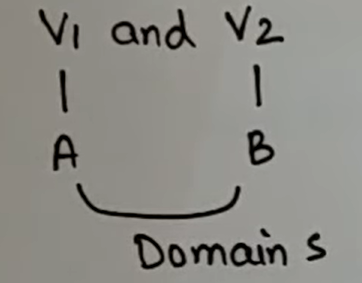 V1 and V2
A B
Domains